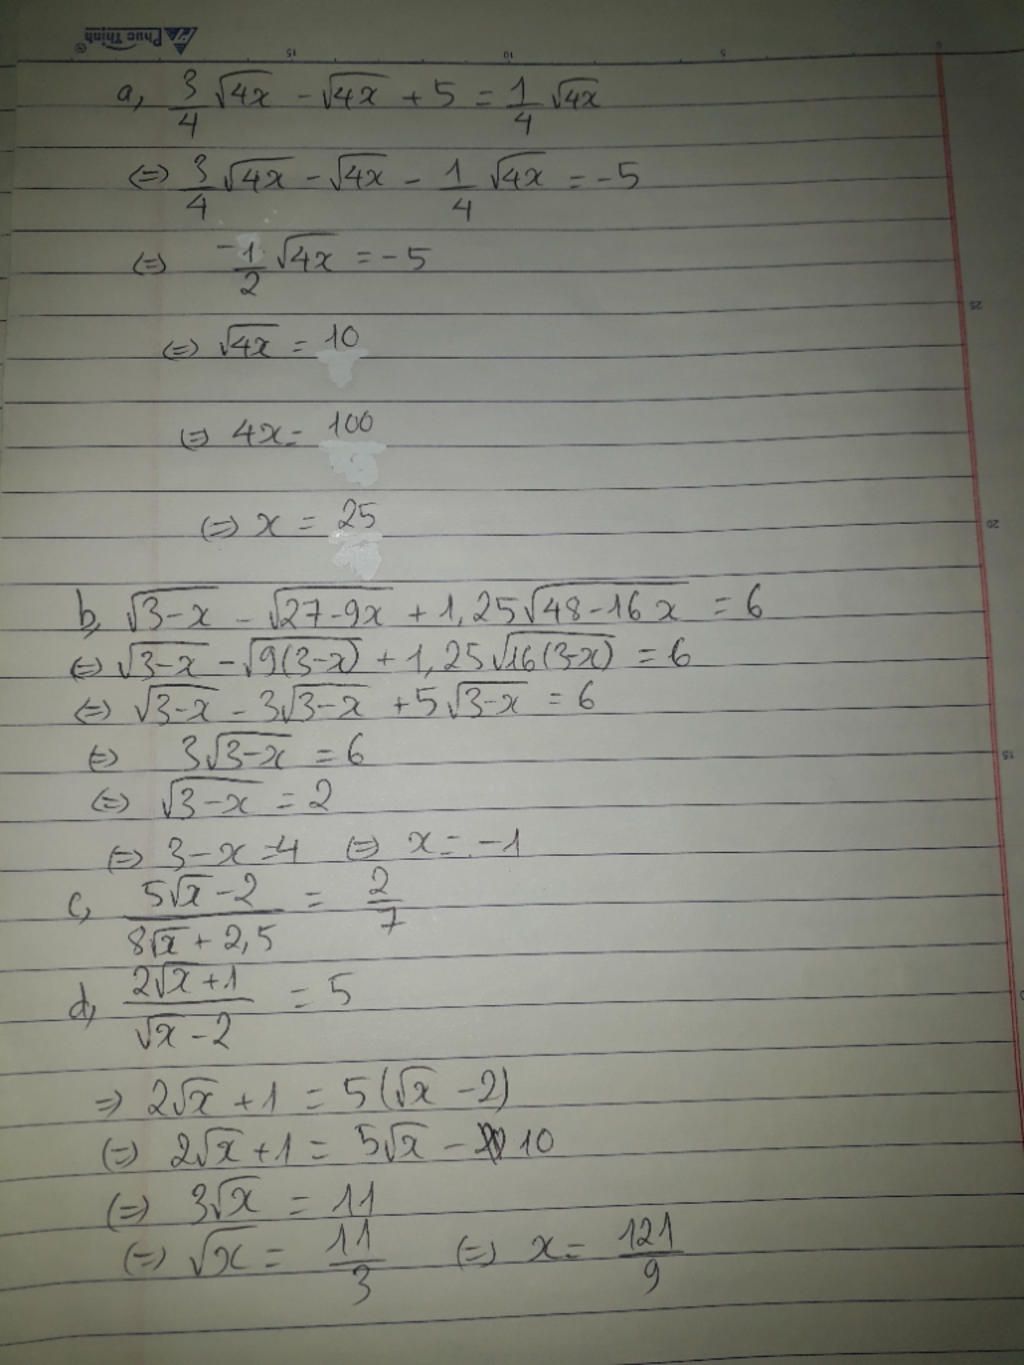 Phúc Thịnh
15 10 5 0
a, 3/4 √4x - √4x + 5 = 1/4 √4x
(=) 3/4 √4x - √4x - 1/4 √4x = -5
(=) -1/2 √4x = -5
25
(=) √4x = 10
(=) 4x = 100
(=) x = 25
20
b, √3-x - √27-9x + 1,25√48-16x = 6
(=) √3-x - √9(3-x) + 1,25√16(3-x) = 6
(=) √3-x - 3√3-x + 5√3-x = 6
(=) 3√3-x = 6
15
(=) √3-x = 2
(=) 3-x=4 (=) x = -1
c, 5√x-2 / 8√x+2,5 = 2/7
d, 2√x+1 / √x-2 = 5
=> 2√x+1 = 5(√x-2)
(=) 2√x+1 = 5√x - 10
(=) 3√x = 11
(=) √x = 11/3 (=) x = 121/9